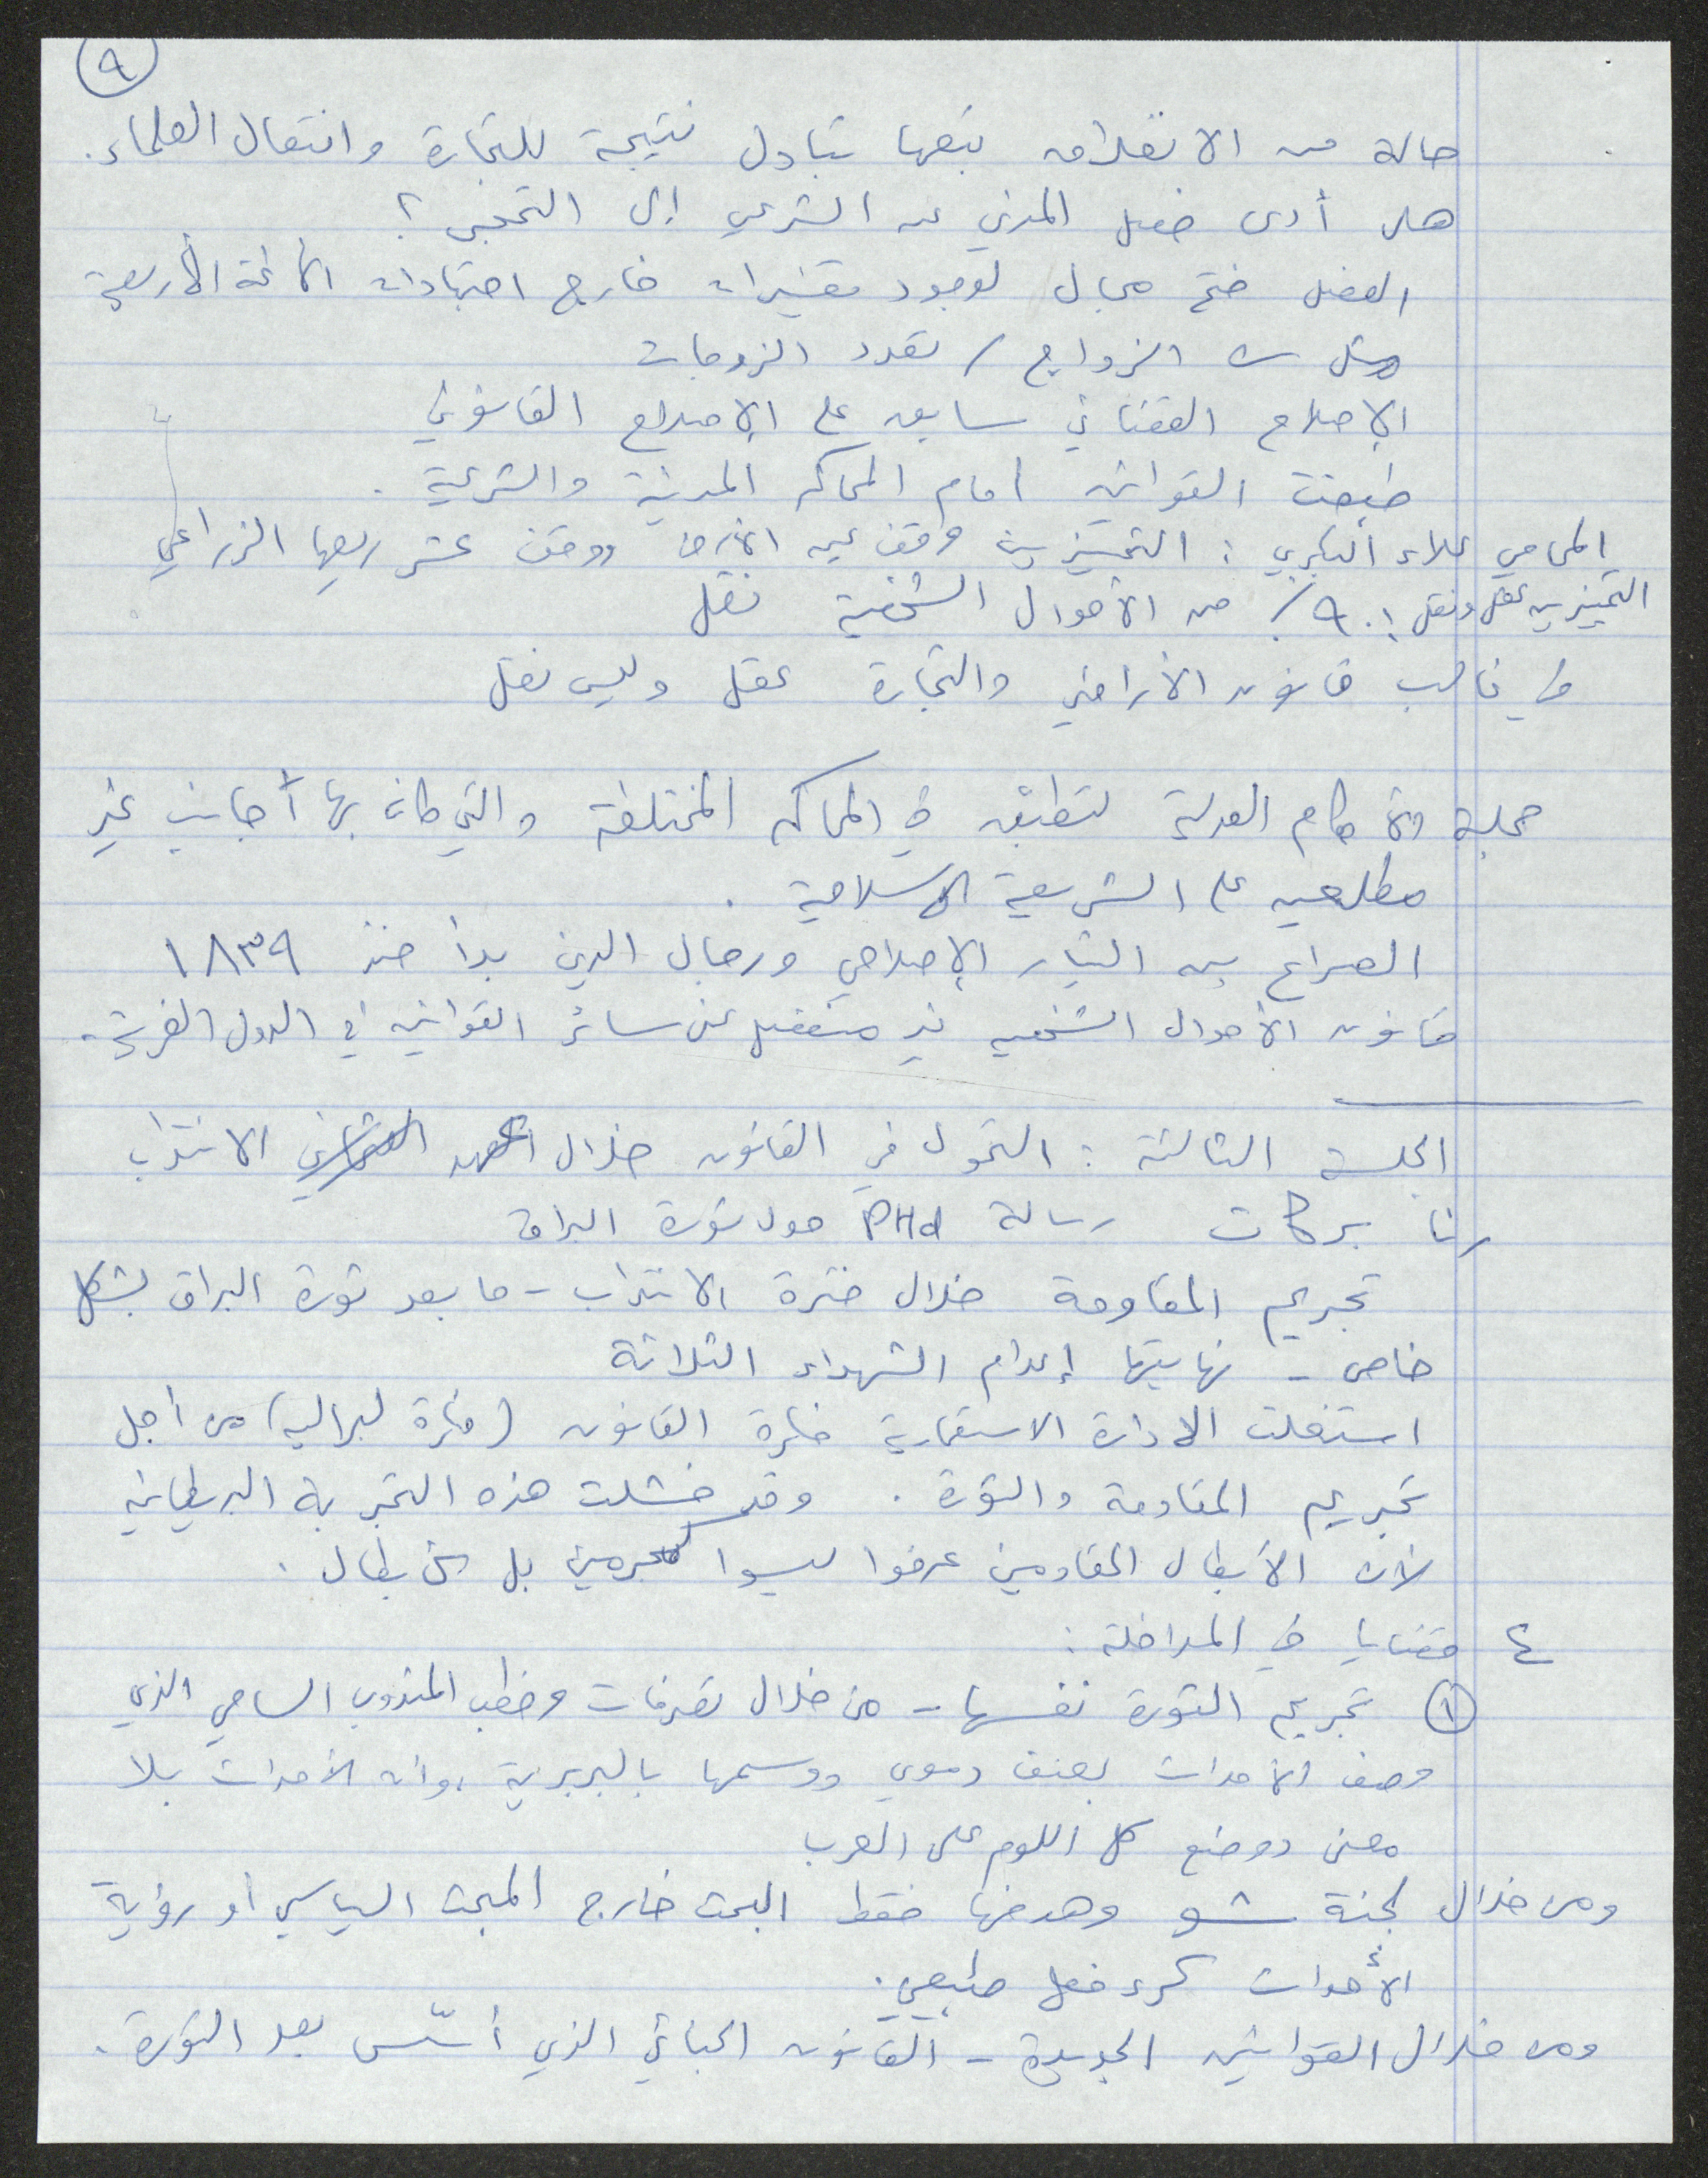 ٩
حالة من الانغلاق تبعها تبادل نتيجة للتجارة وانتقال العلماء.
هل أدى فصل المدني عن الشرعي إلى التحضر؟
الفصل فتح مجال لوجود تفسيرات خارج اجتهادات الأئمة الأربعة
مثل سن الزواج / تعدد الزوجات
الإصلاح القضائي سابق على الإصلاح القانوني
طبقت القوانين امام المحاكم المدنية والشرعية.
المحامي علاء البكري : التمييز بين وقف عين الأرض ووقف عشر ريعها الزراعي
التمييز بين عقل ونقل : ٩٠٪ من الأحوال الشخصية نقل
في غالب قانون الأراضي والتجارة عقل وليس نقل
مجلة الأحكام العدلية لتطبق في المحاكم المختلفة والتي كان بها أجانب غير
مطلعين على الشريعة الإسلامية.
الصراع بين التيار الإصلاحي ورجال الدين بدأ منذ ١٨٣٩
قانون الأحوال الشخصية غير منفصل عن سائر القوانين في الدول الغربية.
الجلسة الثالثة : التحول في القانون خلال العهد العثماني الانتداب
رنا بركات رسالة PHd حول ثورة البراق
تجريم المقاومة خلال فترة الانتداب - ما بعد ثورة البراق بشكل
خاص - نهايتها إعدام الشهداء الثلاثة
استغلت الادارة الاستعمارية فكرة القانون (فكرة لبرالية) من أجل
تجريم المقاومة والثورة. وقد فشلت هذه التجربة البريطانية
لأن الأبطال المقاومين عرفوا ليسوا كمجرمين بل كأبطال.
٤ قضايا في المداخلة :
١ تجريم الثورة نفسها - من خلال تصرفات وخطب المندوب السامي الذي
وصف الأحداث بعنف دموي ووسمها بالبربرية، وان الأحداث بلا
معنى ووضع كل اللوم على العرب
ومن خلال لجنة شو وهدفها فقط البحث خارج المبحث السياسي او رؤية
الأحداث كرد فعل طبيعي.
ومن خلال القوانين الجديدة - القانون الجنائي الذي أسّس بعد الثورة.